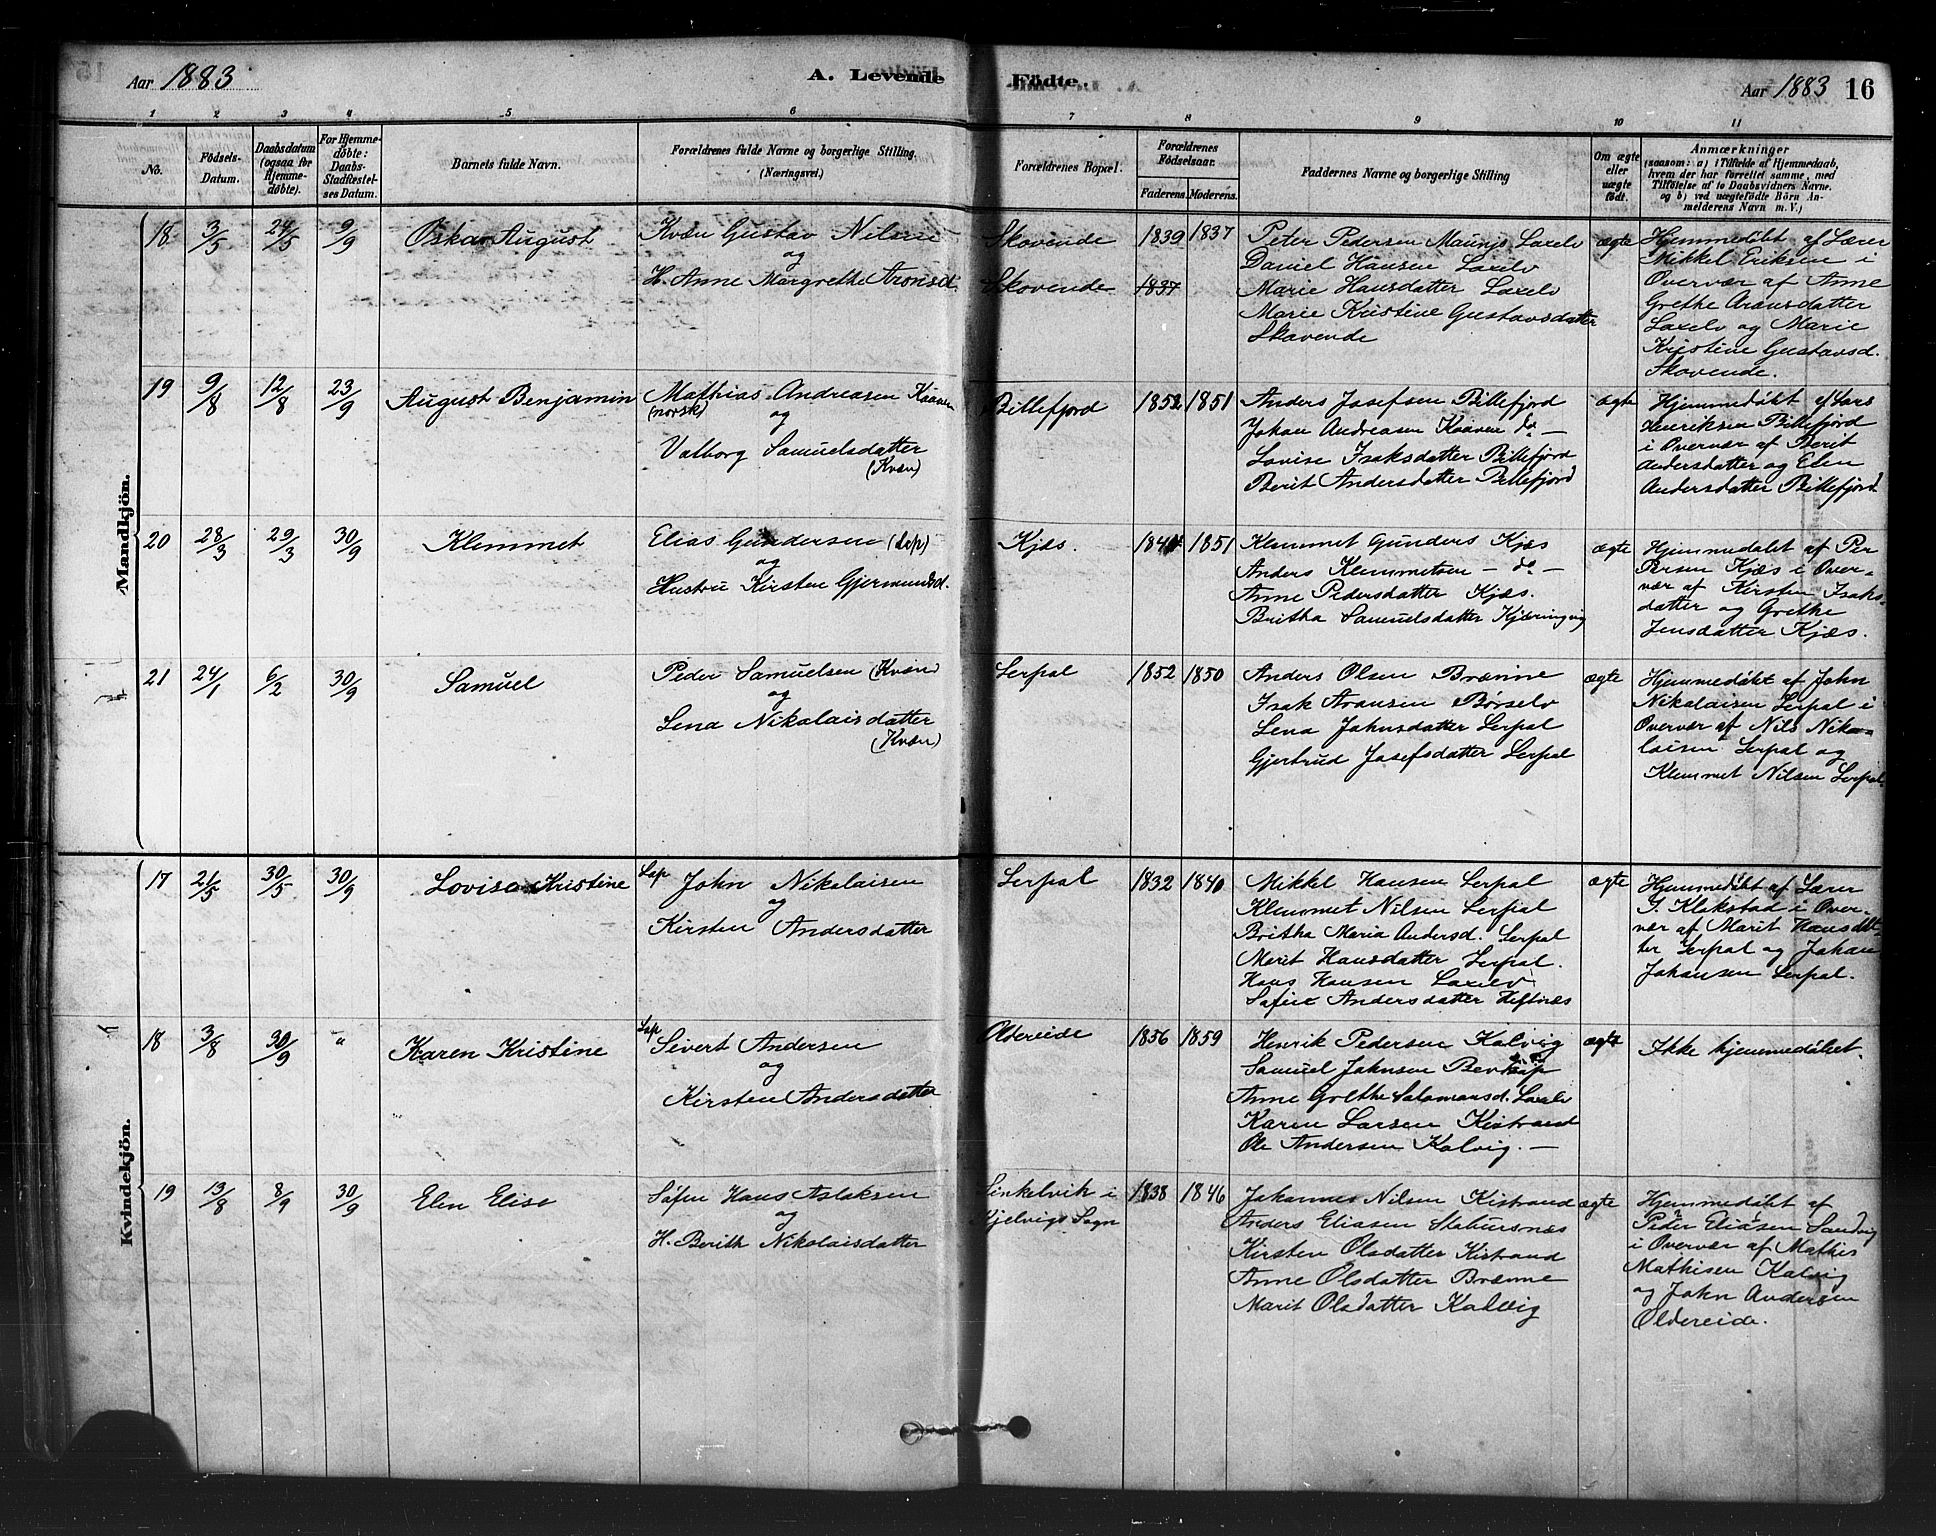 Aar 1883
A. Levende
Födte.
Aar 1883 16
1 2 3 4 5 6 7 8 9 10 11
No.
Födsels-
Datum.
Daabsdatum
(ogsaa for
Hjemme-
döbte).
For Hjemme-
döbte:
Daabs-
Stadfæstel-
ses Datum.
Barnets fulde Navn.
Forældrenes fulde Navne og borgerlige Stilling.
(Næringsvei.)
Forældrenes Bopæl.
Forældrenes
Födselsaar.
Faderens. Moderens.
Faddernes Navne og borgerlige Stilling
Om ægte
eller
uægte
födt.
Anmærkninger
(saasom: a) i Tilfælde af Hjemmedaab,
hvem der har forrettet samme, med
Tilföielse af to Daabsvidners Navne.
og b) ved uægtefödte Börn An-
melderens Navn m. V.)
Mandkjön.
18 3/5 24/5 9/9 Oskar August
Kvæn Gustav Nilsen
og
H. Anne Margrethe Aronsdt.
Skovende
Skovende
1839 1837
1837
Peter Pedersen Maunus Laxelv
Daniel Hansen Laxelv
Marie Hansdatter Laxelv
Marie Kristine Gustavsdatter
Skovende
ægte
Hjemmedøbt af Lærer
Mikkel Eriksen i
Overvær af Anne
Grethe Aronsdatter
Laxelv og Marie
Kristine Gustavsd.
Skovende.
19 9/8 12/8 23/9 August Benjamin
Mathias Andreasen Kaaven
(norsk) og
Valborg Samuelsdatter
(Kvæn)
Billefjord
1852 1851
Anders Josefsen Billefjord
Johan Andreasen Kaaven do —
Lovise Isaksdatter Billefjord
Berit Andersdatter Billefjord
ægte
Hjemmedøbt af Lars
Henriksen Billefjord
i Overvær af Berit
Andersdatter og Elen
Andersdatter Billefjord
20 28/3 29/3 30/9 Klemmet
Elias Gundersen (Lap)
og
Hustru Kirsten Gjermundsd.
Kjæs.
1851
Klemmet Gunders Kjæs
Anders Klemmetsen — do —
Anne Pedersdatter Kjæs.
Britha Samuelsdatter Kjæringvig
ægte
Hjemmedøbt af Per
Persen Kjæs i Over-
vær af Kirsten Isaks-
datter og Grethe
Jensdatter Kjæs.
21 24/1 6/2 30/9 Samuel
Peder Samuelsen (Kvæn)
og
Lena Nikolaisdatter
(Kvæn)
Lerpal
1852 1850
Anders Olsen Brænne
Isak Aronsen Børselv
Lena Johnsdatter Lerpal
Gjertrud Josefsdatter Lerpal
ægte
Hjemmedøbt af John
Nikolaisen Lerpal i
Overvær af Nils Niko-
laisen Lerpal og
Klemmet Nilsen Lerpal.
Kvindekjön.
17 21/5 30/5 30/9 Lovise Kristine
Lap John Nikolaisen
og
Kirsten Andersdatter
Lerpal
1832 1840
Mikkel Hansen Lerpal
Klemmet Nilsen Lerpal
Britha Maria Andersd. Lerpal
Marit Hansdatter Lerpal.
Hans Hansen Laxelv
Sofie Andersdatter
ægte
Hjemmedøbt af Lærer
J. Klokstad i Over-
vær af Marit Hansdat-
ter Lerpal og Johan
Johansen Lerpal.
18 3/8 30/9 " Karen Kristine
Lap Sivert Andersen
og
Kirsten Andersdatter
Oldereide
1856 1859
Henrik Pedersen Kalvig
Samuel Johnsen
Anne Grethe Salomonsd. Laxelv
Karen Larsen Kistrand
Ole Andersen Kalvig. —
ægte
Ikke hjemmedøbt.
19 13/8 8/9 30/9 Elen Elise
Søfin Hans Aslaksen
og
H. Berith Nikolaisdatter
Sinkelvik i
Kjelvigs Sogn
1838 1846
Johannes Nilsen Kistrand
Anders Eliasen Stabursnæs
Kirsten Olsdatter Kistrand
Anne Olsdatter Brænne
Marit Olsdatter Kalvig
ægte
Hjemmedøbt af
Peder Eliasen Sandvig
i Overvær af Mathis
Mathisen Kalvig
og John Andersen
Oldereide.